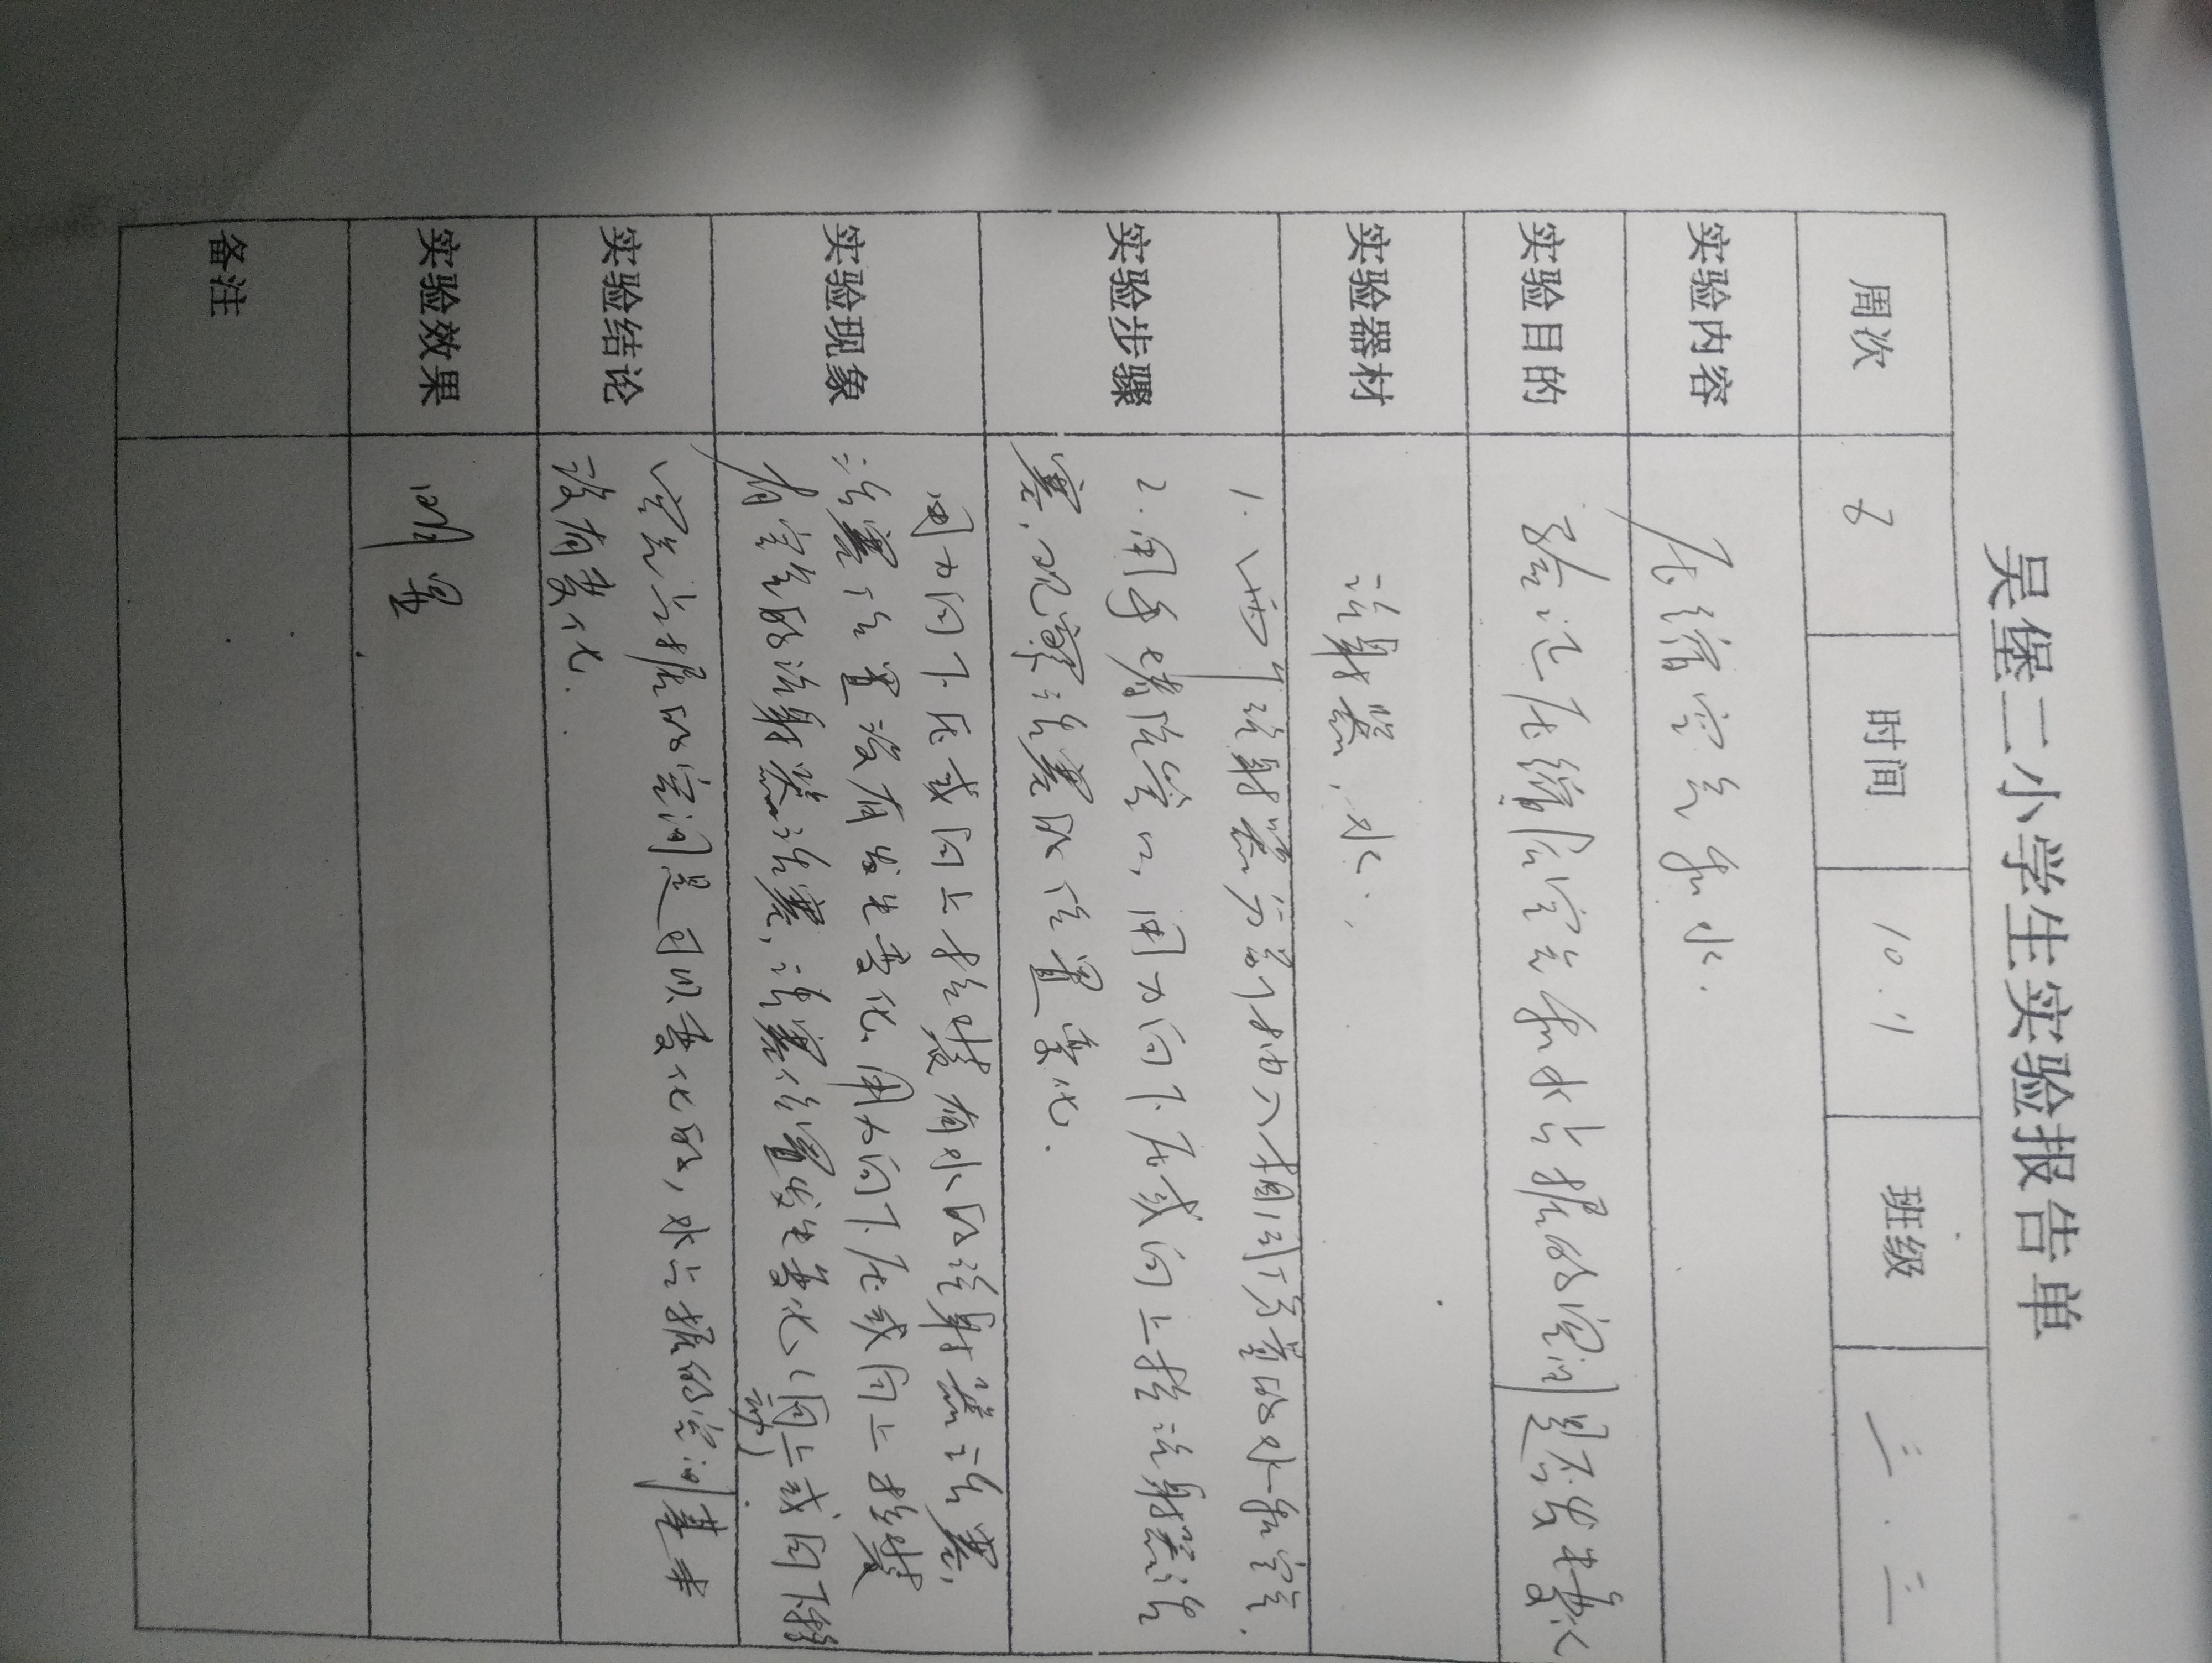 吴堡二小学生实验报告单
周次 6 时间 10.11 班级 三.三
实验内容 压缩空气和水.
实验目的 验证压缩后空气和水占据的空间是否发生变化
实验器材 注射器,水.
实验步骤 1.两个注射器分别抽入相同质量的水和空气.
2.用手堵住管口,用力向下压或向上拉注射器活
塞,观察活塞的位置变化.
实验现象 用力向下压或向上拉装有水的注射器活塞,
活塞位置没有发生变化.用力向下压或向上拉装
有空气的注射器活塞,活塞位置发生变化(向上或向下移
动)
实验结论 空气占据的空间是可以变化的,水占据的空间基本
没有变化.
实验效果 明显
备注